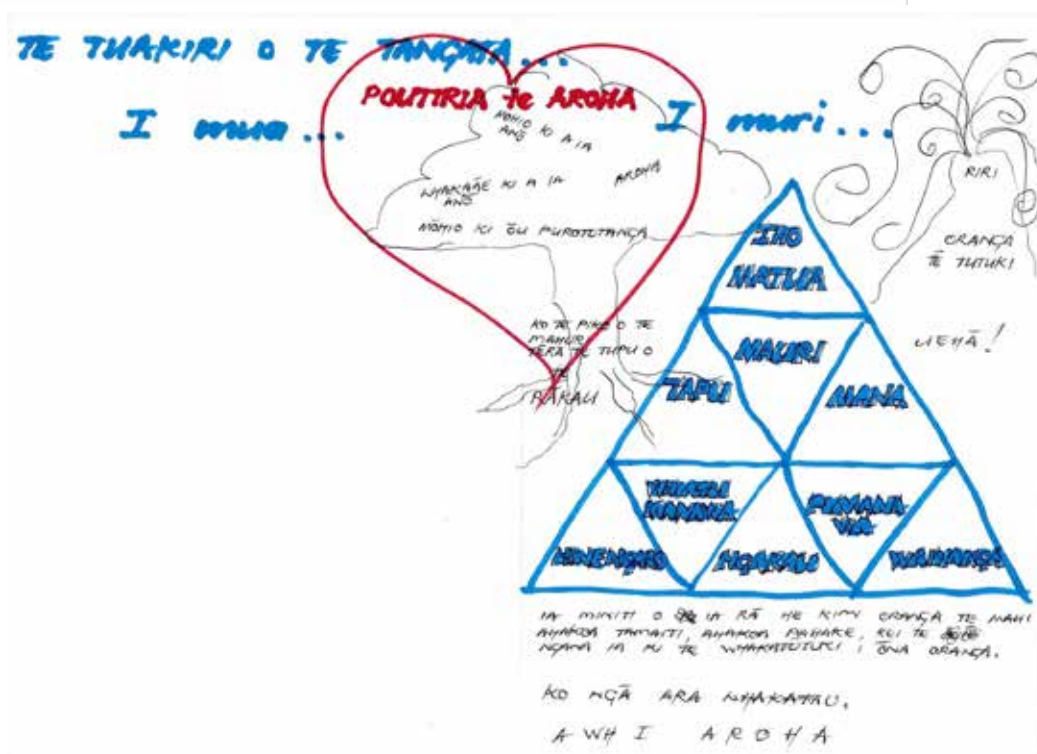 TE TUAKIRI O TE TANGATA...
I mua...
POUTIRIA te AROHA
I muri...
MOHIO KI A IA
ANŌ
WHAKAAE KI A IA
ANŌ
AROHA
MŌHIO KI ŌU PUROTUTANGA
KO TE PIKO O TE
MAHURI
TĒRĀ TE TUPU O
TE
RĀKAU
RIRI
ORANGA
TĒ TUTUKI
UEHĀ!
IHO
MATUA
TAPU
MAURI
MANA
HINENGARO
WHATU
MANAWA
NGAKAU
PUMANA
WA
WAIRANGA
IA MINITI O IA RĀ HE KIMI ORANGA TE MAHI
AHAKOA TAMAITI, AHAKOA PAHAKE, KEI TE
NGANA IA KI TE WHAKATUTUKI I ŌNA ORANGA.
KO NGĀ ARA WHAKATAU.
AWHI AROHA